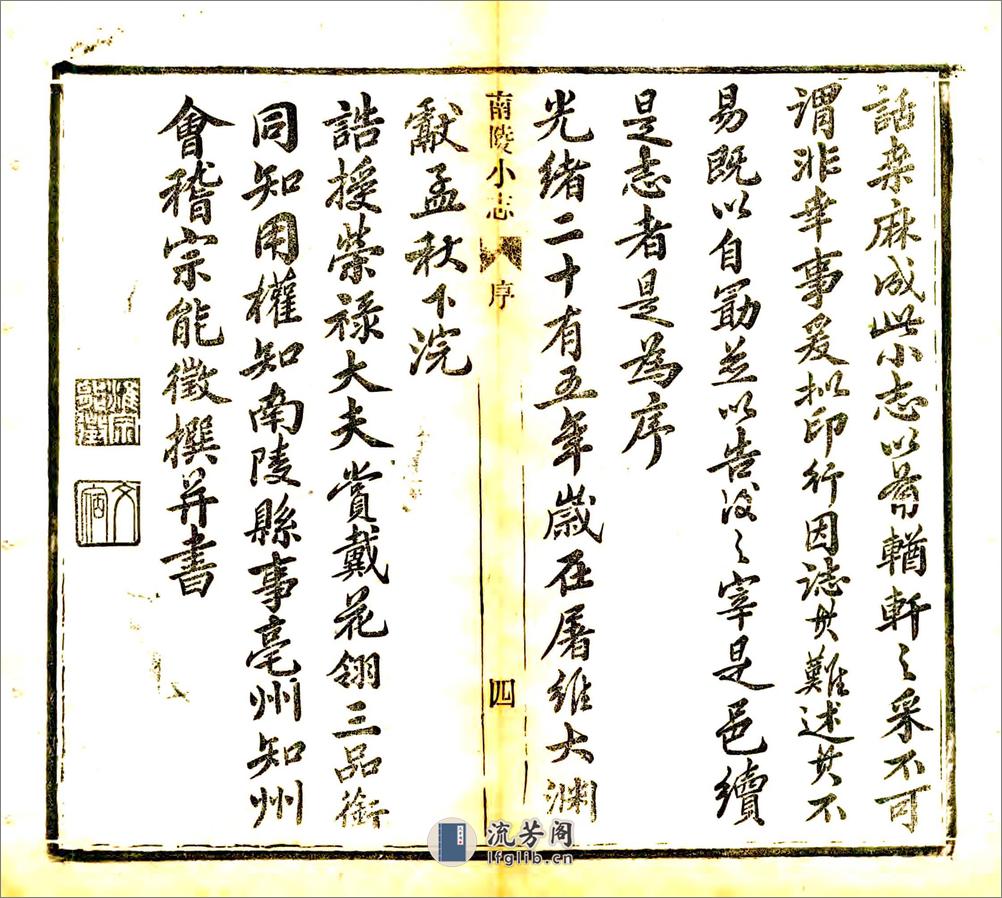 話桑麻成此小志以備輶軒之采不可
謂非幸事爰擬印行因誌其難述其不
易既以自勖並以告後之宰是邑續
是志者是為序
光緒二十有五年歲在屠維大淵
獻孟秋下浣
誥授榮祿大夫賞戴花翎三品銜
同知用權知南陵縣事亳州知州
會稽宗能徵撰并書
南陵小志 序 四
流芳阁
lfglib.cn